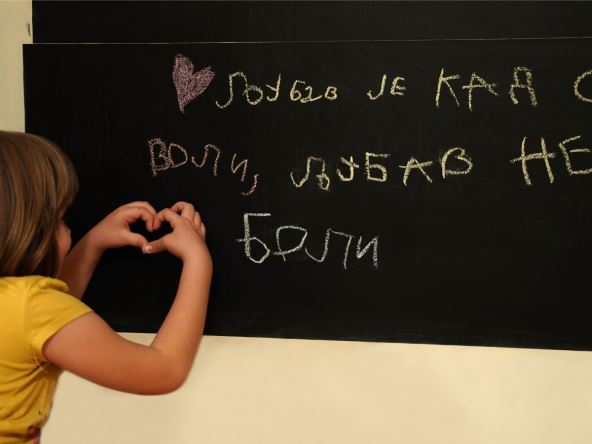 ЉУБАВ ЈЕ КАД
ВОЛИ, ЉУБАВ НЕ
БОЛИ